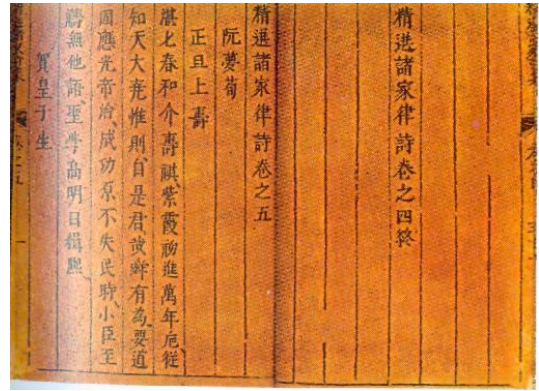 精選諸家律詩卷之四終
精選諸家律詩卷之五
阮夢荀
正旦上壽
湛匕春和介壽祺紫霞初進萬年卮從
知天大堯惟則自是君哉舜有為要道
固應光帝治成功原不失民時小臣至
禱無他語聖學高明日緝熈
賀皇子生
卷之五
一